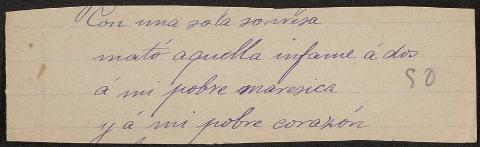 Con una sola sonrisa
mató aquella infame á dos
á mi pobre maresica
y á mi pobre corazón
50